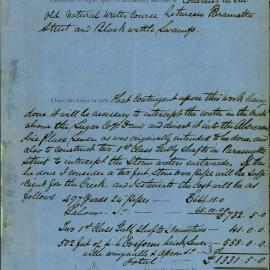 old natural water course between Paramatta
Street and Blackwattle Swamp.
I have the honor to
That contingent upon this work being
done it will be necessary to intercept the water in the
above the Sugar Coy's Dam and divert it into the
Place Sewer as was originally intended to be done, and
also to construct two 1st Class Gully Shafts in Paramatta
Street to intercept the Storm waters eastwards. If this
be done I consider a two feet Stoneware pipe will be
for the Creek. and estimate the Cost will be as
follows 497 yards 24" pipes
Labour
£732. 5. 0
Two 1st Class Gully Shafts & 41. 0. 0
502 feet of Sewer 558. 0. 0
with wingwalls & Apron
Total £1331. 5. 0